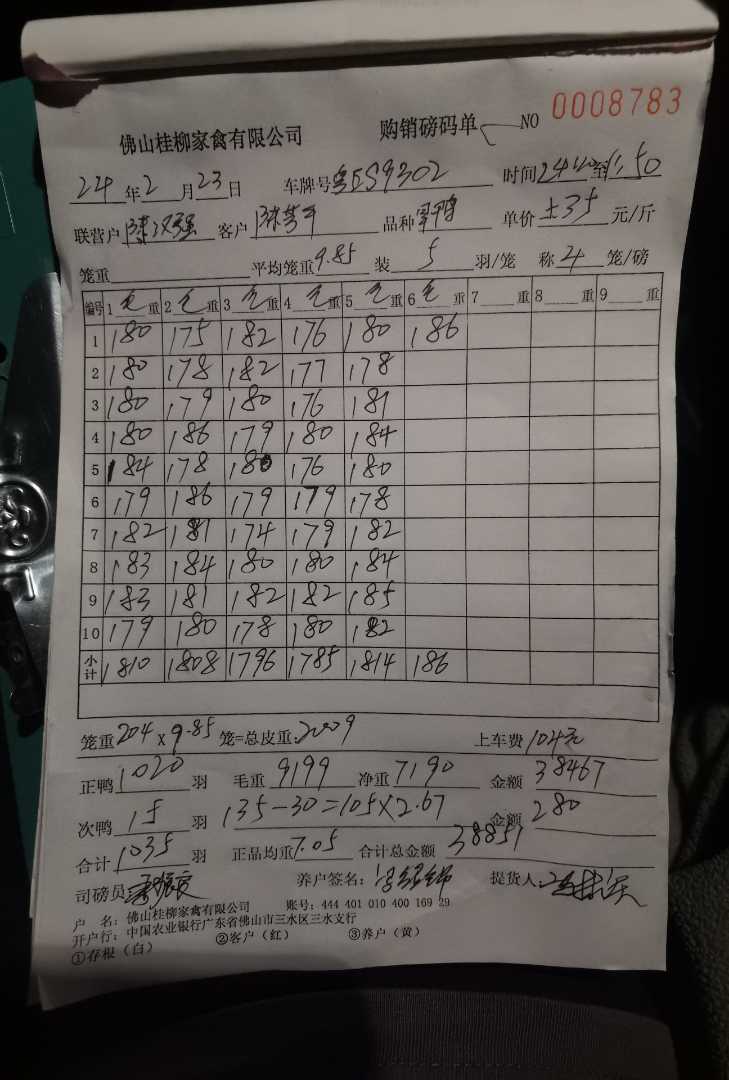 佛山桂柳家禽有限公司 购销磅码单 NO 0008783
24年2月23日 车牌号 时间 至1.50
联营户 客户 品种 单价 5.35元/斤
笼重 平均笼重9.85 装5羽/笼 称4笼/磅
编号 1毛重 2毛重 3毛重 4毛重 5毛重 6毛重 7重 8重 9重
1 180 175 182 176 180 186
2 180 178 182 177 178
3 180 179 180 176 181
4 180 186 179 180 184
5 184 178 180 176 180
6 179 186 179 179 178
7 182 181 174 179 182
8 183 184 180 180 184
9 183 181 182 182 185
10 179 180 178 180 182
小计 1810 1808 1796 1785 1814 186
笼重204×9.85笼=总皮重:2009 上车费104元
正鸭1020羽 毛重9199 净重7190 金额38467
次鸭15羽 135-30=105×2.67 金额280
合计1035羽 正品均重7.05 合计总金额38851
司磅员 养户签名: 提货人
户 名: 佛山桂柳家禽有限公司 账号: 444 401 010 400 169 29
开户行: 中国农业银行广东省佛山市三水区三水支行
①存根(白) ②客户(红) ③养户(黄)